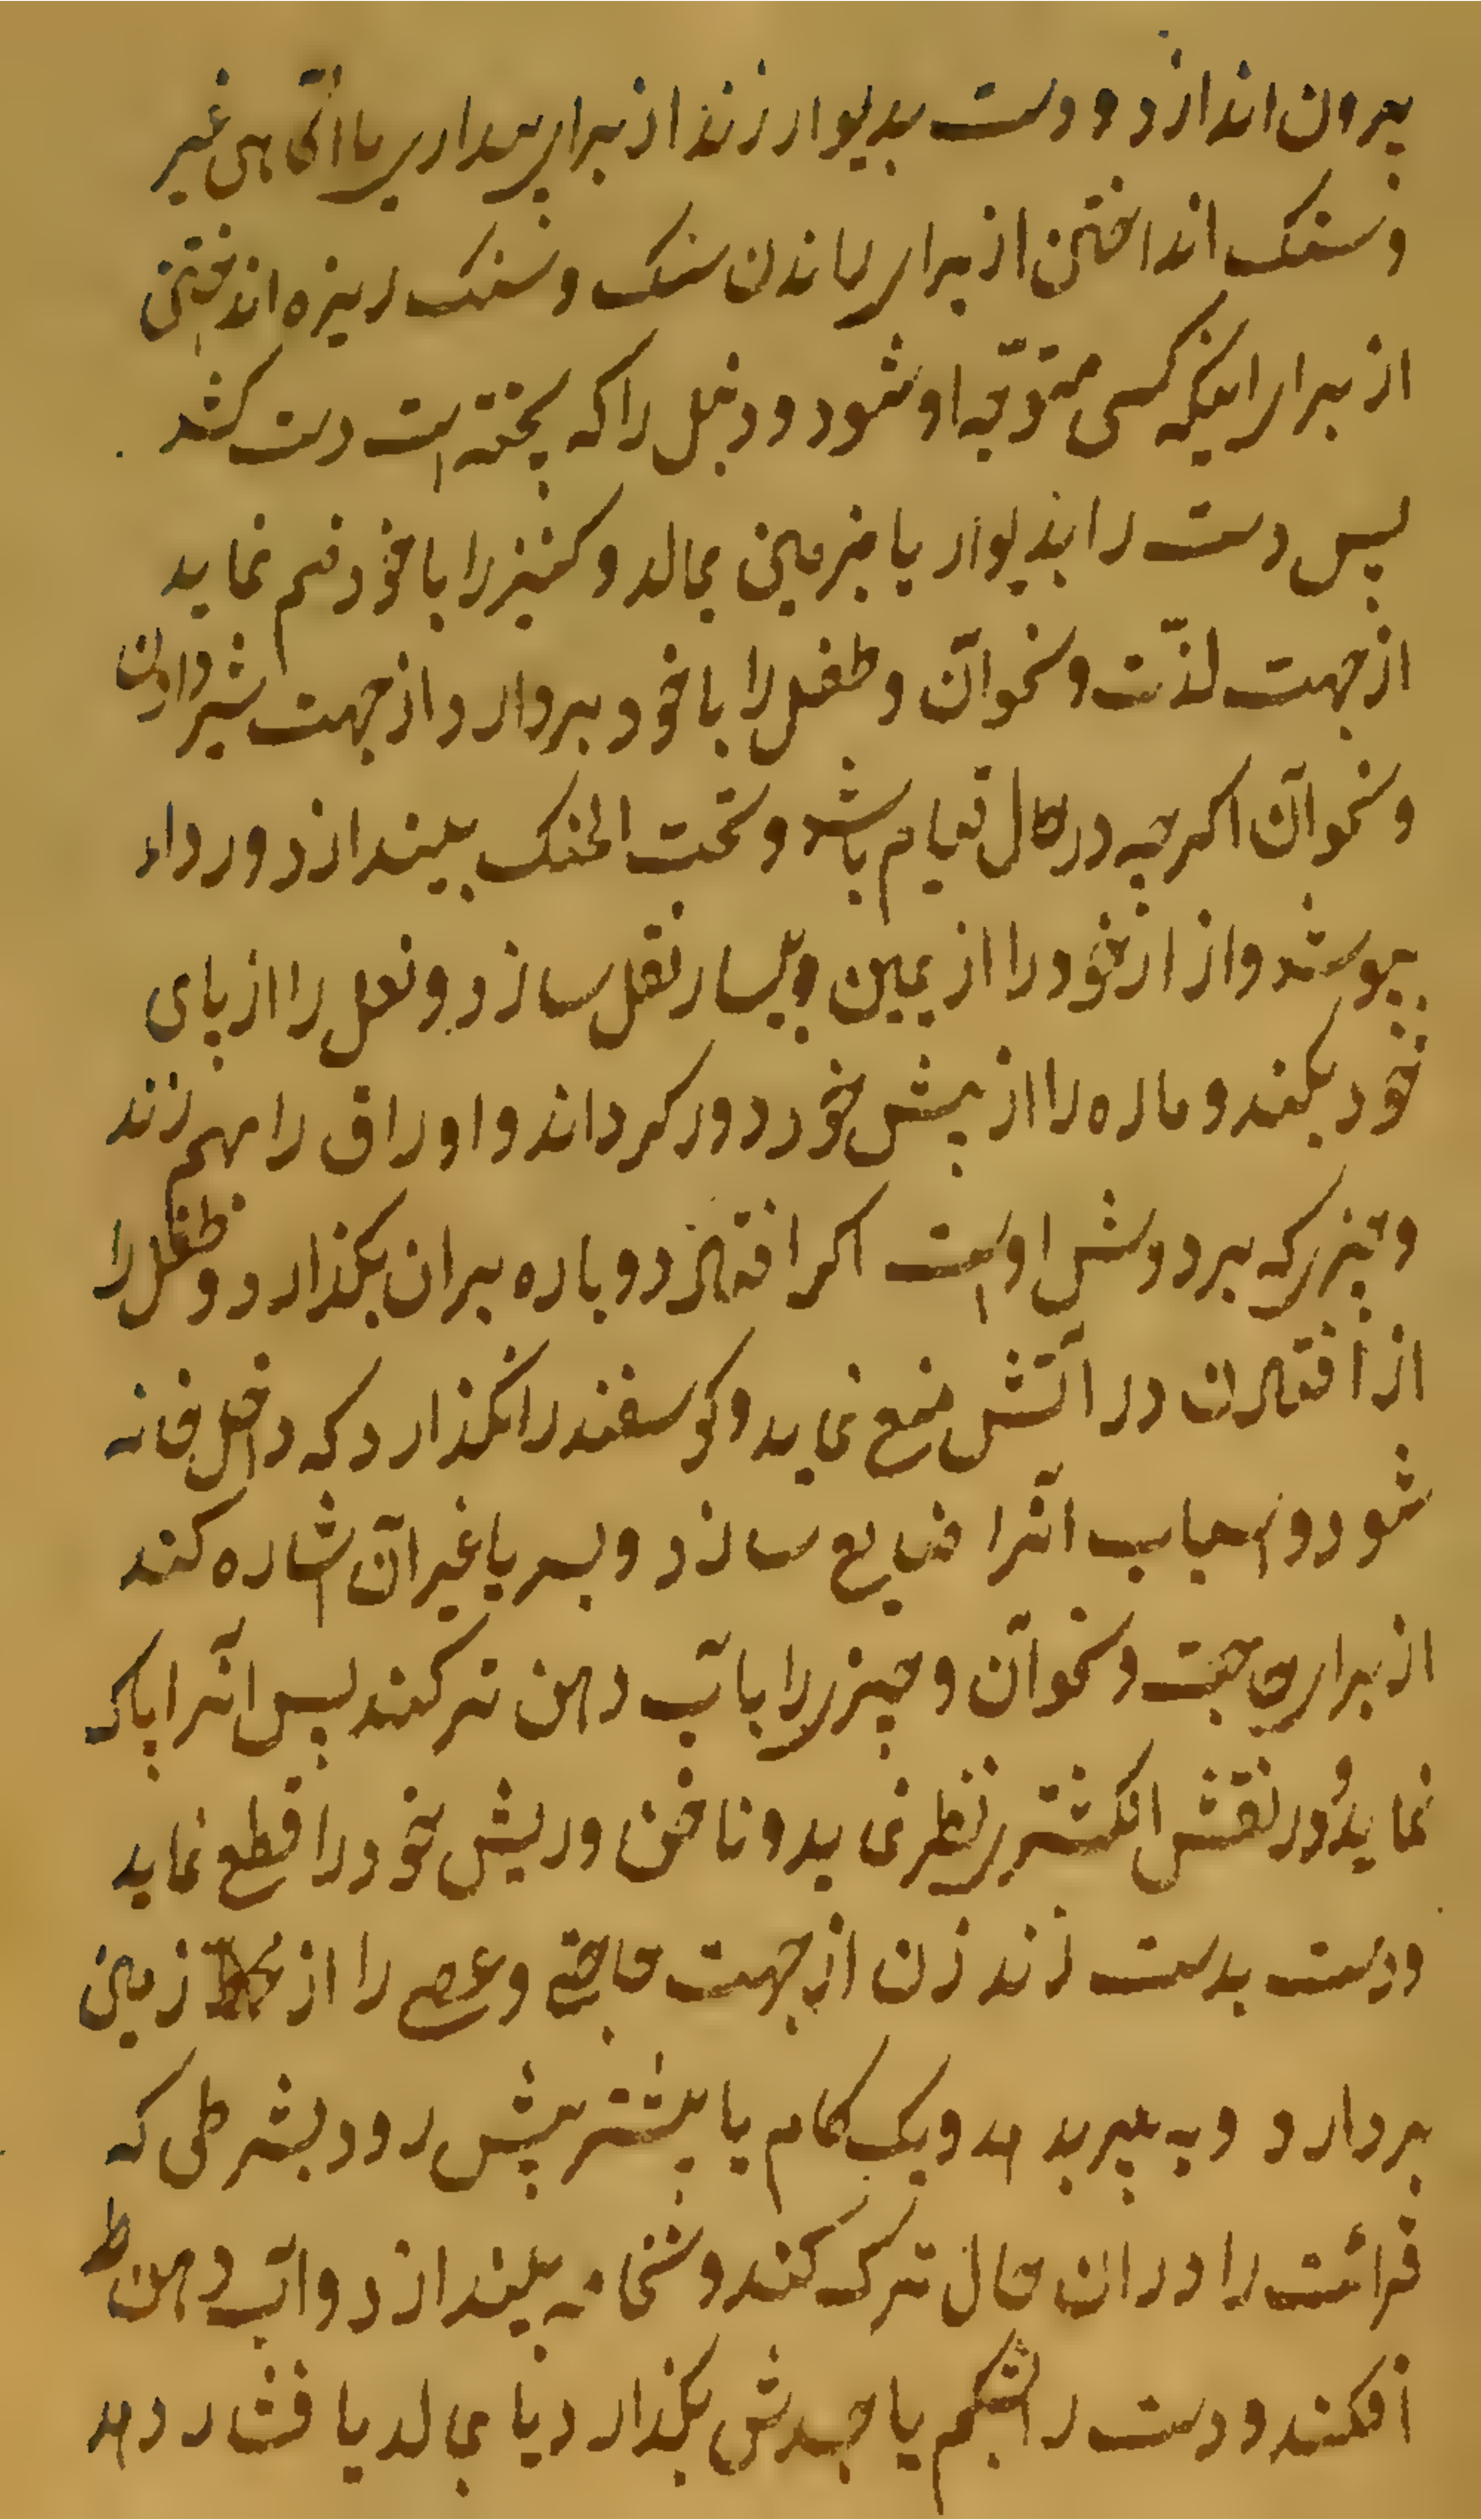 بیرون اندازد و دست بدیوار زند از برای بیداری یا اتی بهی غیر
و سنک انداختن از برای رماندن سک و سنک ریزه انداختن
از برای اینکه کسی متوجه او شود و دنبل را که پخته است دست کشد
پس دست را بدیوار یا بزمین بمالد و کنیز را با خود ضم نماید
از جهت لذّت و نحو آن و طفل را با خود بردارد از جهت شیر دادن
و نحو آن اکر چه در حال قیام باشد و تحت الحنک بیندازد و رداء
بپوشد و ازار خود را از یمین و یسار نقل سازد و نعل را از پای
خود بکند و ماره را از پیش خود دور کرداند و اوراق را بهم زند
و چیزی که بر دوش اوست اکر افتاد دوباره بران بکذارد و طفل را
از افتادن در اتش منع نماید و کوسفند را نکذارد که داخل خانه
شود و اسباب آنرا ضایع سازد و بسر یا غیر آن اشاره کند
از برای حاجت و نحو آن و چیزی را با آب دهن تر کند پس آنرا پاک
نماید و در نقش انکشتری نظر نماید و ناخن و ریش خود را قطع نماید
و دست بدست زند زن از جهت حاجتی و عصی را از زمین
بردارد و به پیر بدهد و یک کام یا بیشتر پیش رود بشرطی که
قرائت را در ان حال ترک کند و نخامه بیندازد و اب دهن
افکند و دست را بشکم یا جسدش بکذارد یا بمالد یا فشار دهد